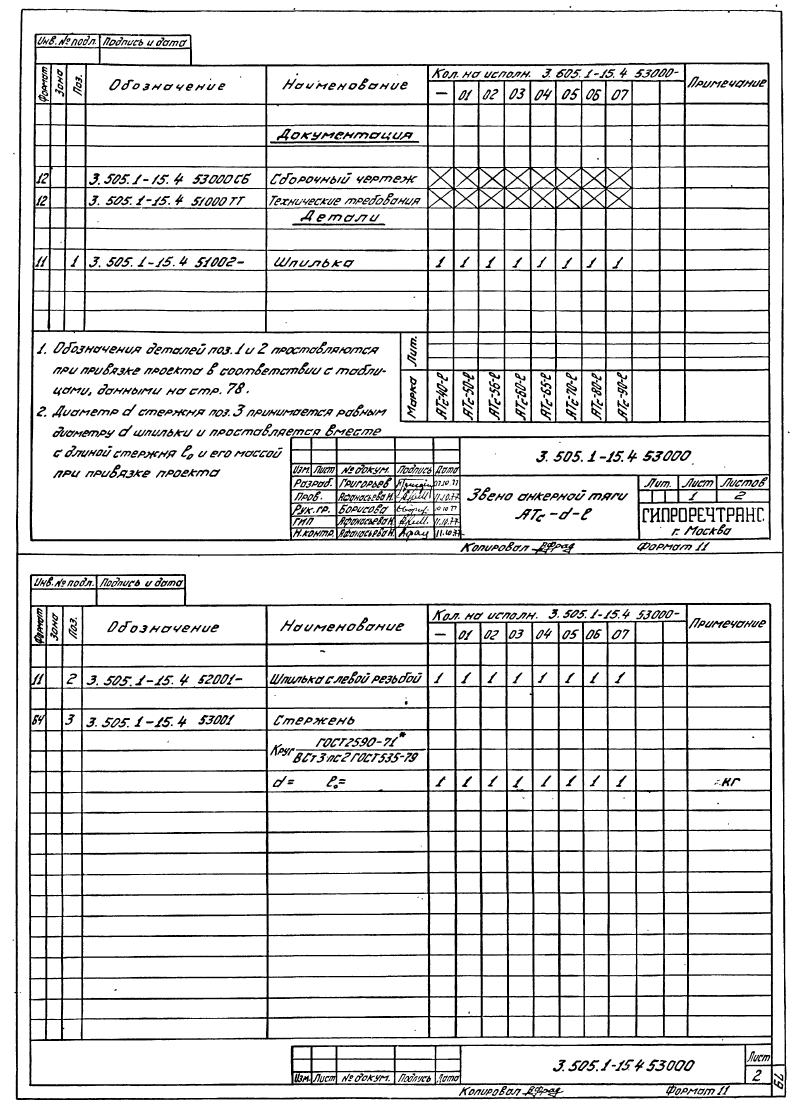 Инв. № подл. Подпись и дата
Формат Зона Поз. Обозначение Наименование Кол. на исполн. 3.605.1-15.4 53000- Примечание
— 01 02 03 04 05 06 07
Документация
12 3.505.1-15.4 53000СБ Сборочный чертеж
12 3.505.1-15.4 51000ТТ Технические требования
Детали
11 1 3.505.1-15.4 51002- Шпилька 1 1 1 1 1 1 1 1
1. Обозначения деталей поз. 1 и 2 проставляются
при привязке проекта в соответствии с табли-
цами, данными на стр. 78.
2. Диаметр d стержня поз. 3 принимается равным
диаметру d шпильки и проставляется вместе
с длиной стержня ℓ₀ и его массой
при привязке проекта
Лит.
Марка АТс-40-ℓ АТс-50-ℓ АТс-56-ℓ АТс-60-ℓ АТс-65-ℓ АТс-70-ℓ АТс-80-ℓ АТс-90-ℓ
3.505.1-15.4 53000
Изм. Лист № докум. Подпись Дата
Разраб. Григорьев 07.10.77
Пров. Афанасьева Н. 11.10.77
Рук. гр. Борисова 10.10.77
ГИП Афанасьева Н. 11.10.77
Н.контр. Афанасьева Н. Афан 11.10.77
Звено анкерной тяги
АТс-d-ℓ
Лит. Лист Листов
1 2
ГИПРОРЕЧТРАНС
г. Москва
Копировал Формат 11
Инв. № подл. Подпись и дата
Формат Зона Поз. Обозначение Наименование Кол. на исполн. 3.505.1-15.4 53000- Примечание
— 01 02 03 04 05 06 07
11 2 3.505.1-15.4 52001- Шпилька с левой резьбой 1 1 1 1 1 1 1 1
БЧ 3 3.505.1-15.4 53001 Стержень
Круг ГОСТ2590-71*
ВСт3пс2 ГОСТ535-79
d= ℓ₀= 1 1 1 1 1 1 1 1 кг
3.505.1-15.4 53000
Лист
2
Изм. Лист № докум. Подпись Дата
Копировал Формат 11
79